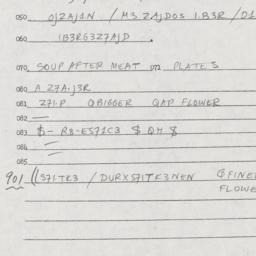 050 OJZAJ1N / M3 ZAJDOS I.B3R / D1
060 IB3R6327AJD .
070 SOUP AFTER MEAT 073 PLATE 3
080 A Z7A.J3R
081 Z71.P QBIGGER QAP FLOWER
082 —
083 $- R8-E571C3 $ QM $
084
085
901 S71TR3 / DURXS71TR3NEN QFINE
FLOWE